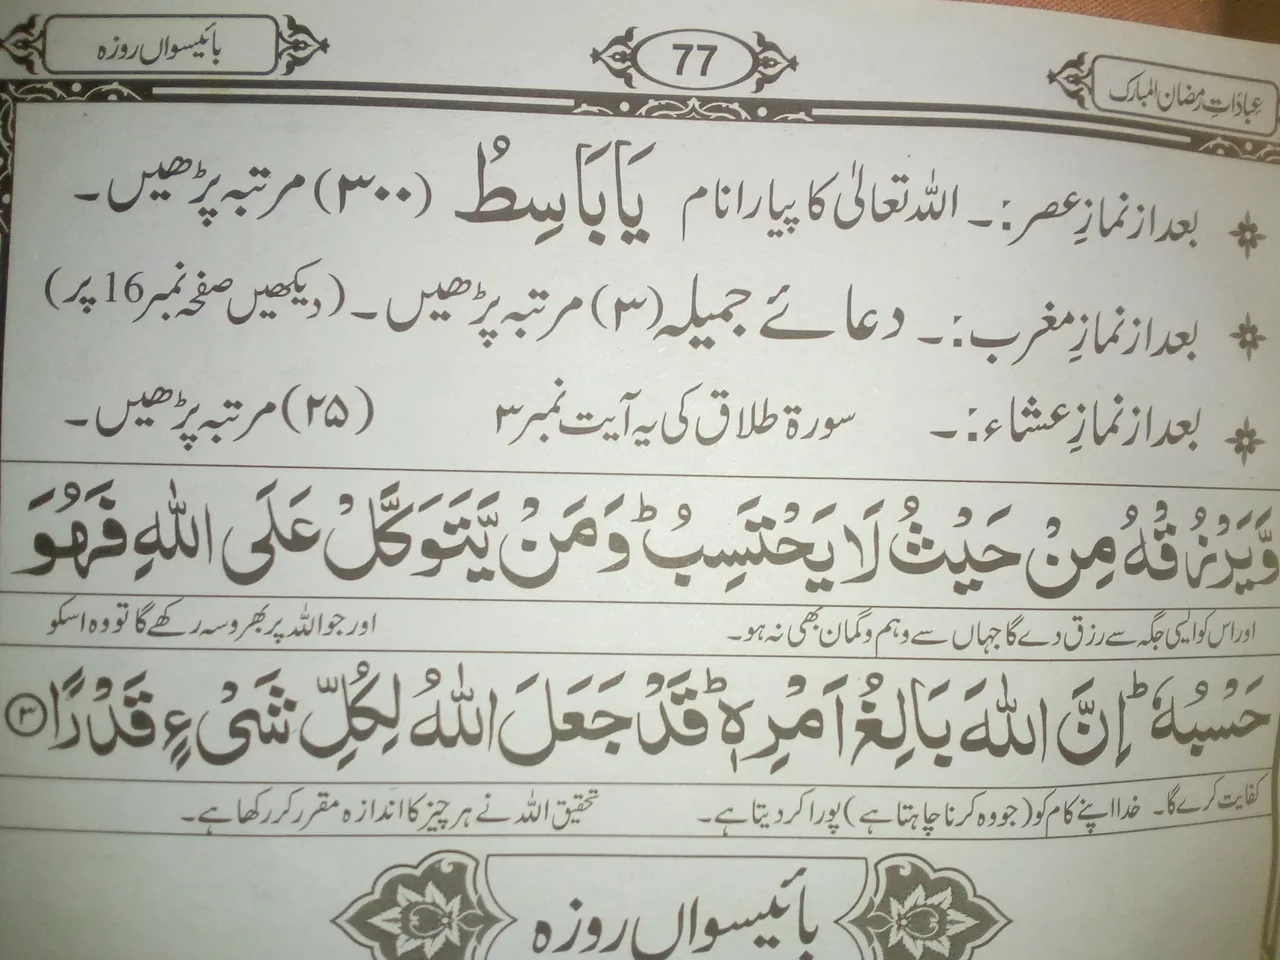 عبادات رمضان المبارک
77
بائیسواں روزہ
بعد از نمازِ عصر:۔ اللہ تعالیٰ کا پیارا نام یَا بَاسِطُ (۳۰۰) مرتبہ پڑھیں۔
بعد از نمازِ مغرب:۔ دعائے جمیلہ (۳) مرتبہ پڑھیں۔ (دیکھیں صفحہ نمبر 16 پر)
بعد از نمازِ عشاء:۔ سورۃ طلاق کی یہ آیت نمبر ۳ (۲۵) مرتبہ پڑھیں۔
وَّیَرْزُقْهُ مِنْ حَیْثُ لَا یَحْتَسِبُ ؕ وَمَنْ یَّتَوَكَّلْ عَلَی اللّٰهِ فَهُوَ
اور اس کو ایسی جگہ سے رزق دے گا جہاں سے وہم و گمان بھی نہ ہو۔ اور جو اللہ پر بھروسہ رکھے گا تو وہ اسکو
حَسْبُهٗ ؕ اِنَّ اللّٰهَ بَالِغُ اَمْرِهٖ ؕ قَدْ جَعَلَ اللّٰهُ لِكُلِّ شَیْءٍ قَدْرًا ۳
کفایت کرے گا۔ خدا اپنے کام کو (جو وہ کرنا چاہتا ہے) پورا کر دیتا ہے۔ تحقیق اللہ نے ہر چیز کا اندازہ مقرر کر رکھا ہے۔
بائیسواں روزہ